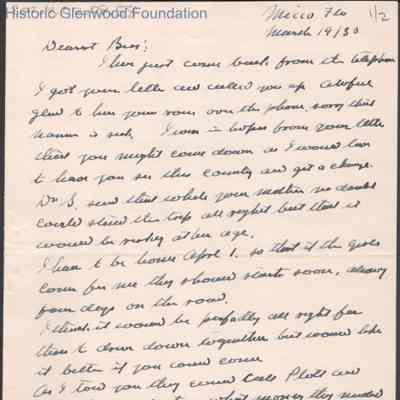 Historic Glenwood Foundation
1/2
Micco, Fla
March 19/30
Dearest Bess;
I have just come back from the telephone
I got your letter and called you up. Awful
glad to hear your voice over the phone, sorry that
is sick. I was in hopes from your letter
that you might come down as I would love
to have you see this country and get a change.
Dr S. said that while your mother no doubt
could stand the trip all right but that it
would be risky at her age.
I have to be home April 1. so that if the girls
come for me they should start soon, allowing
four days on the road.
I think it would be perfectly all right for
them to drive down together but would like
it better if you could come
As I told you they could and
what money they needed